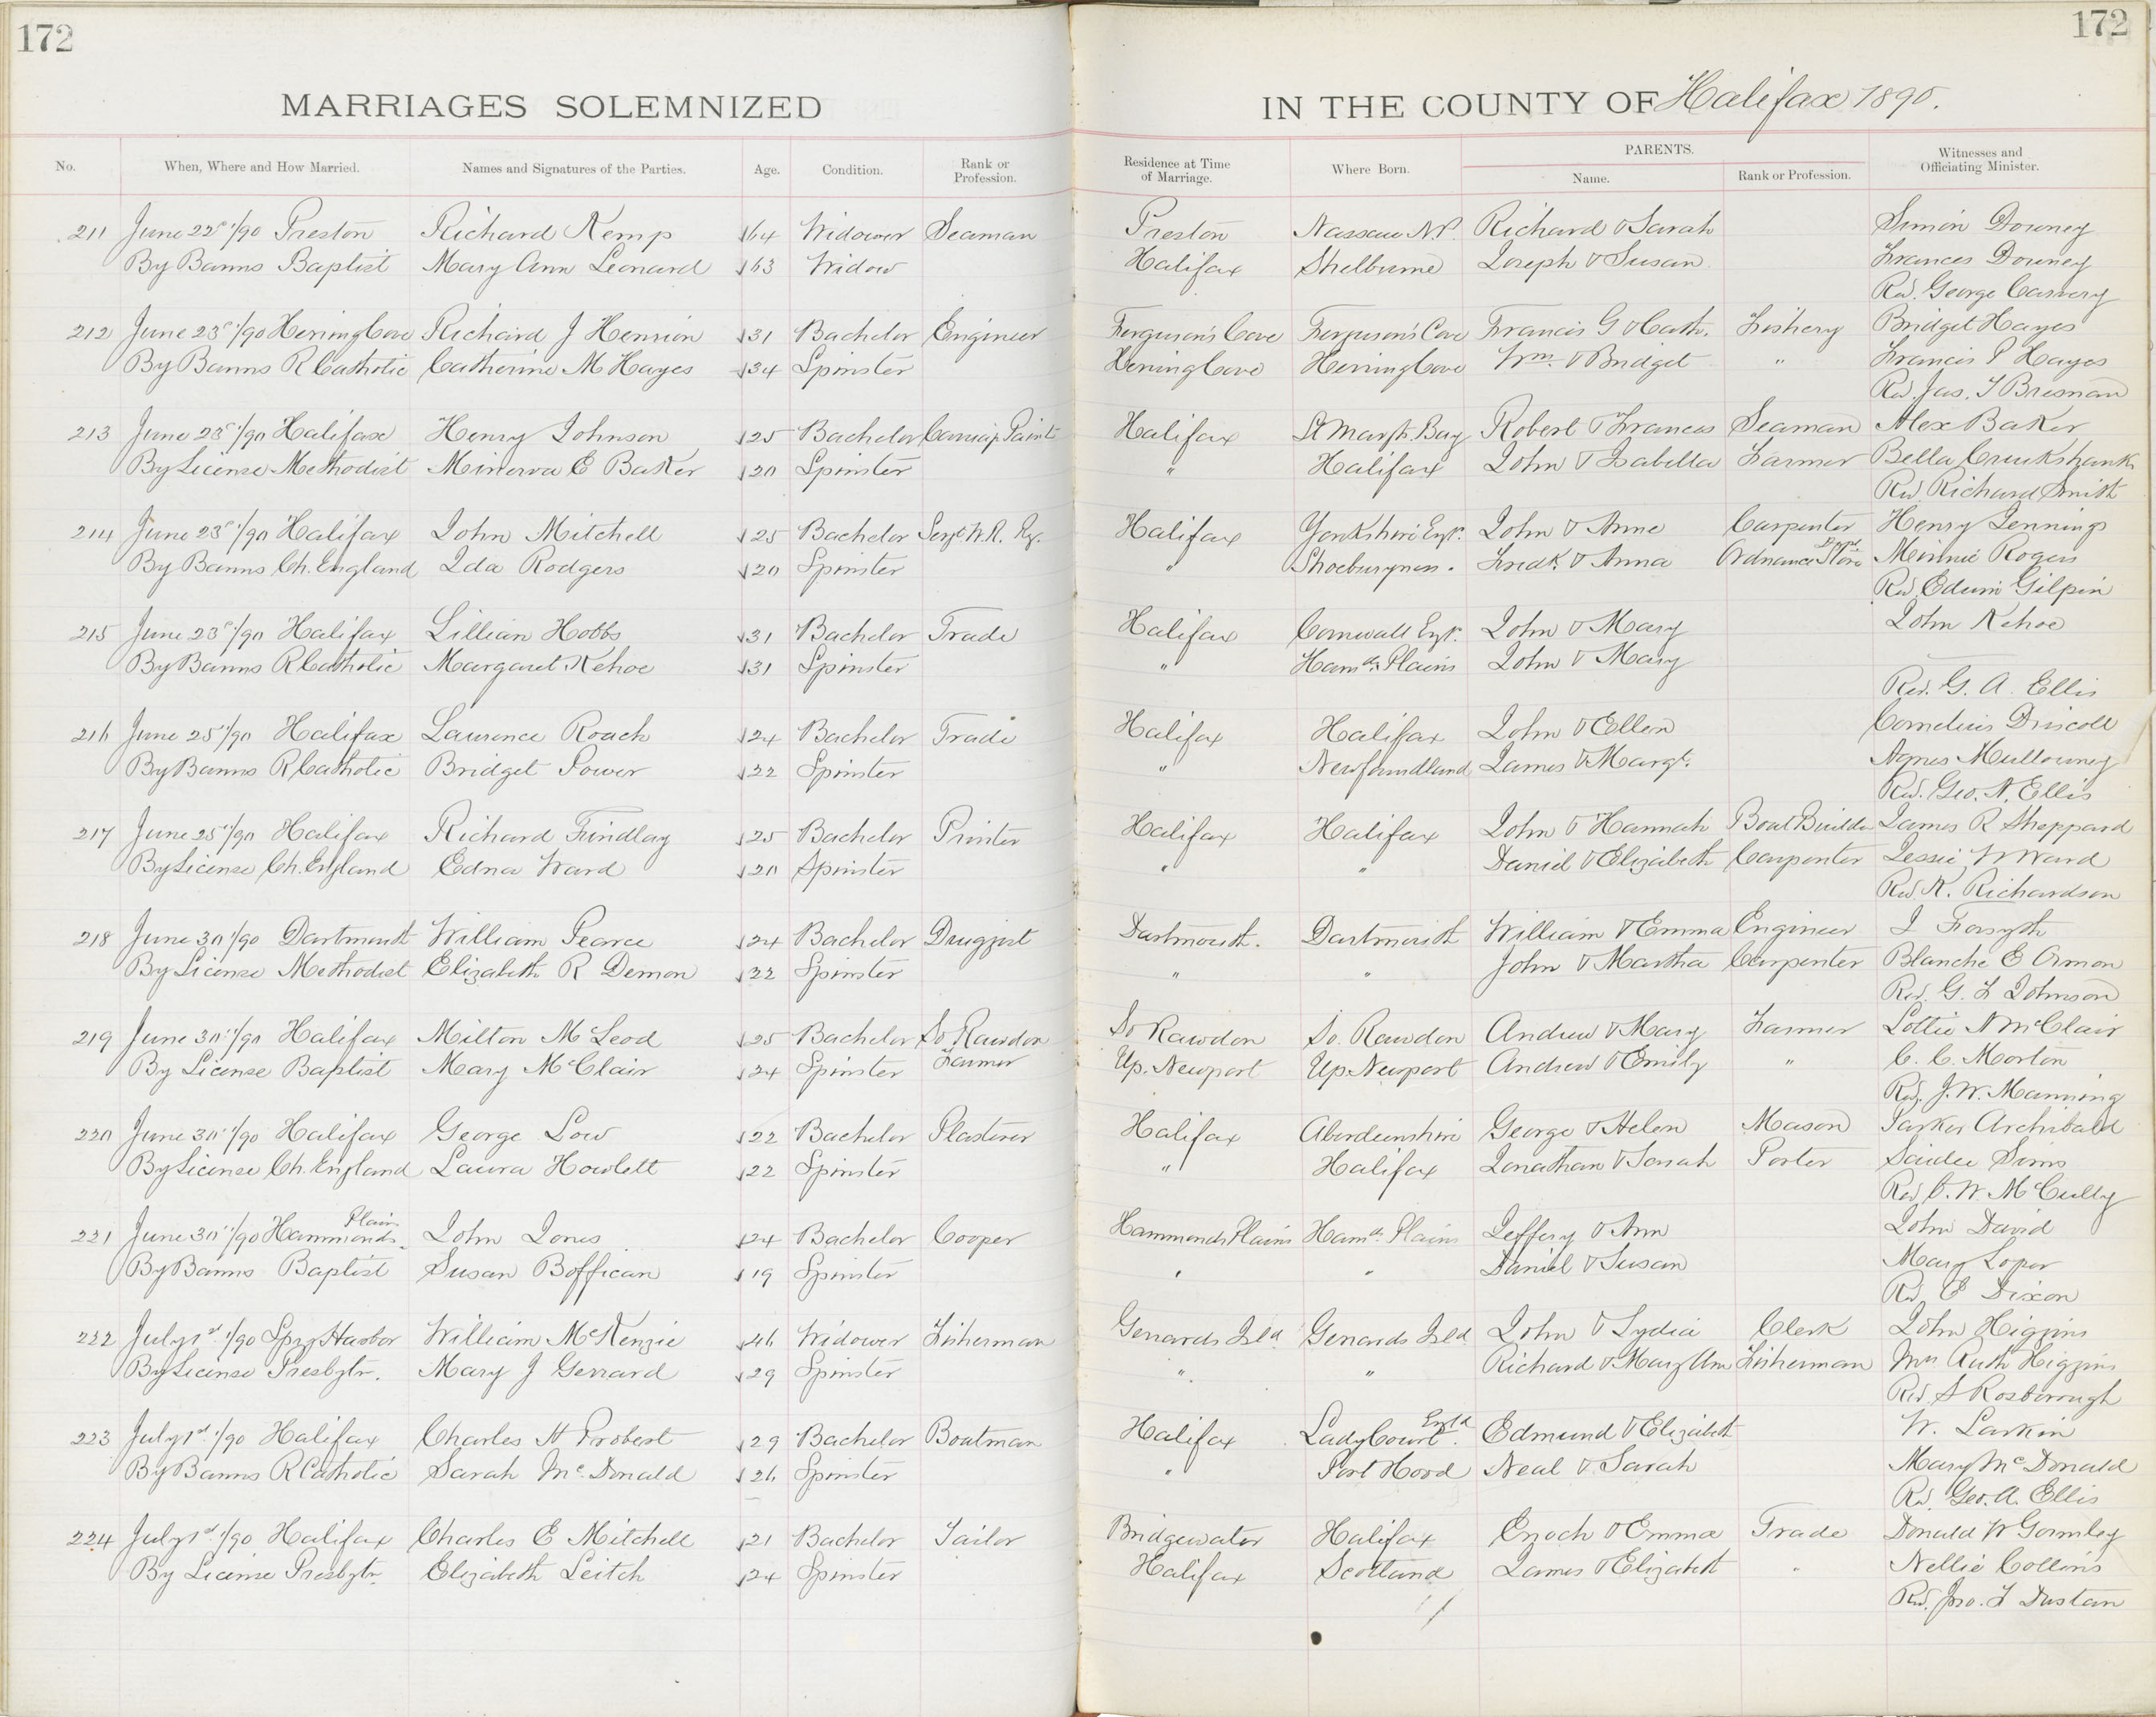 172
172
MARRIAGES SOLEMNIZED IN THE COUNTY OF Halifax 1890.
No. When, Where and How Married. Names and Signatures of the Parties. Age. Condition. Rank or Profession. Residence at Time of Marriage. Where Born. PARENTS. Name. Rank or Profession. Witnesses and Officiating Minister.
211 June 22 /90 Preston Richard Kemp 64 Widower Seaman Preston Nassau N.P. Richard & Sarah Simon Downey
By Banns Baptist Mary Ann Leonard 63 Widow Halifax Shelburne Joseph & Susan Frances Downey
Rev. George Carvery
212 June 23 /90 Herring Cove Richard J Henrion 31 Bachelor Engineer Ferguson's Cove Ferguson's Cove Francis G & Cath. Fishery Bridget Hayes
By Banns R Catholic Catherine M Hayes 34 Spinster Herring Cove Herring Cove Wm. & Bridget " Francis P Hayes
Rev. Jas. T Bresnan
213 June 23 /90 Halifax Henry Johnson 25 Bachelor Carriage Paint Halifax St Margts. Bay Robert & Frances Seaman Alex Baker
By License Methodist Minerva E Baker 20 Spinster " Halifax John & Isabella Farmer Bella Cruikshank
Rev. Richard Smith
214 June 23 /90 Halifax John Mitchell 25 Bachelor Sergt W.R. Rg. Halifax Yorkshire Engd. John & Anne Carpenter Henry Jennings
By Banns Ch. England Ida Rodgers 20 Spinster " Shoeburyness. Fredk. & Anna Ordnance Store Minnie Rogers
Rev. Edwin Gilpin
215 June 23 /90 Halifax Lillian Hobbs 31 Bachelor Trade Halifax Cornwall Engd. John & Mary John Kehoe
By Banns R Catholic Margaret Kehoe 31 Spinster " Hamds Plains John & Mary
Rev. G. A. Ellis
216 June 25 /90 Halifax Laurence Roach 24 Bachelor Trade Halifax Halifax John & Ellen Cornelius Driscoll
By Banns R Catholic Bridget Power 22 Spinster " Newfoundland James & Margt. Agnes Mullowney
Rev. Geo. A. Ellis
217 June 25 /90 Halifax Richard Findlay 25 Bachelor Printer Halifax Halifax John & Hannah Boat Builder James R Sheppard
By License Ch. England Edna Ward 20 Spinster " " Daniel & Elizabeth Carpenter Jessie W Ward
Rev. K. Richardson
218 June 30 /90 Dartmouth William Pearce 24 Bachelor Druggist Dartmouth. Dartmouth William & Emma Engineer J Forsyth
By License Methodist Elizabeth R Demon 22 Spinster " " John & Martha Carpenter Blanche E Ormon
Rev. G. F Johnson
219 June 30 /90 Halifax Milton McLeod 25 Bachelor So Rawdon So Rawdon So. Rawdon Andrew & Mary Farmer Lottie A McClair
By License Baptist Mary McClair 24 Spinster Farmer Up. Newport Up. Newport Andrew & Emily " C. C. Morton
Rev. J. W. Manning
220 June 30 /90 Halifax George Low 22 Bachelor Plasterer Halifax Aberdeenshire George & Helen Mason Parker Archibald
By License Ch. England Laura Howlett 22 Spinster " Halifax Jonathan & Sarah Porter Saidee Sims
Rev. C. W. McCully
221 June 30 /90 Hammonds Plains John Jones 24 Bachelor Cooper Hammonds Plains Hamds. Plains Jeffery & Ann John David
By Banns Baptist Susan Boffican 19 Spinster " " Daniel & Susan Mary Loper
Rev. E Dixon
222 July 1st /90 Spry Harbor William McKenzie 46 Widower Fisherman Gerrards Isld. Gerrards Isld. John & Lydia Clerk John Higgins
By License Presbytr. Mary J Gerrard 29 Spinster " " Richard & Mary Ann Fisherman Mrs Ruth Higgins
Rev. S Rosborough
223 July 1st /90 Halifax Charles H Probert 29 Bachelor Boatman Halifax Lady Court Engld. Edmund & Elizabeth W. Larkin
By Banns R Catholic Sarah McDonald 26 Spinster " Port Hood Neal & Sarah Mary McDonald
Rev. Geo. A. Ellis
224 July 1st /90 Halifax Charles E Mitchell 21 Bachelor Tailor Bridgewater Halifax Enoch & Emma Trade Donald W Gormley
By License Presbytr. Elizabeth Leitch 24 Spinster Halifax Scotland James & Elizabeth " Nellie Collins
Rev. Jno. F Dustan